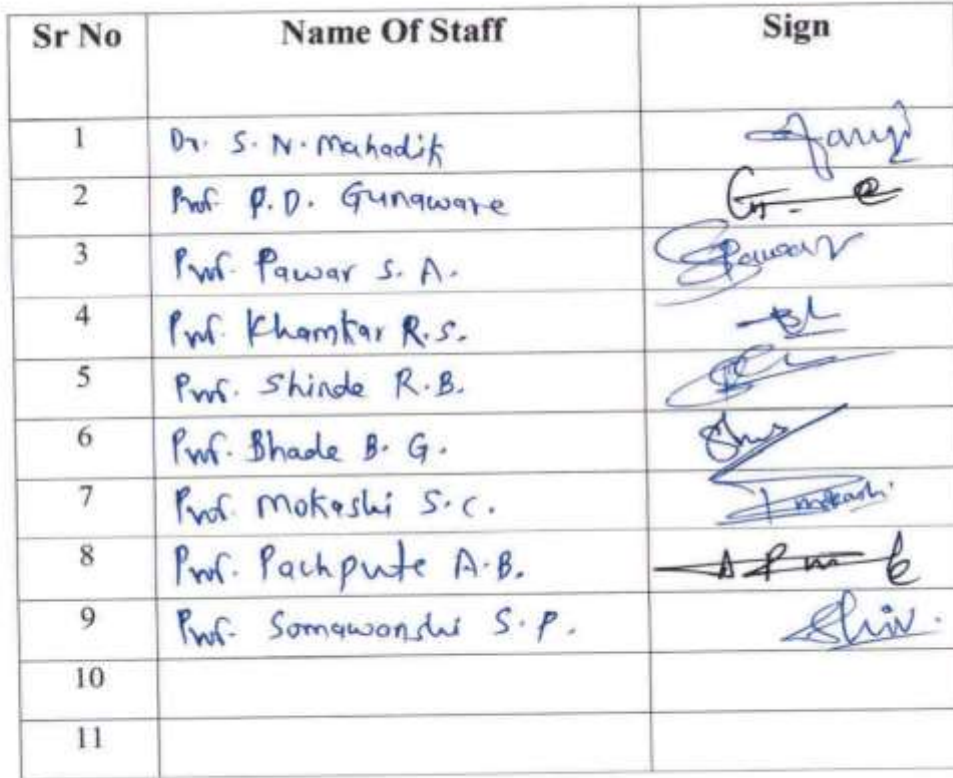 Sr No Name Of Staff Sign
1 Dr. S. N. Mahadik
2 Prof. P. D. Gunaware
3 Prof. Pawar S. A. SPawar
4 Prof. Khamkar R.S.
5 Prof. Shinde R.B.
6 Prof. Bhade B. G.
7 Prof. Mokashi S.C. mokashi
8 Prof. Pachpute A.B.
9 Prof. Somawanshi S.P. Shiv.
10
11